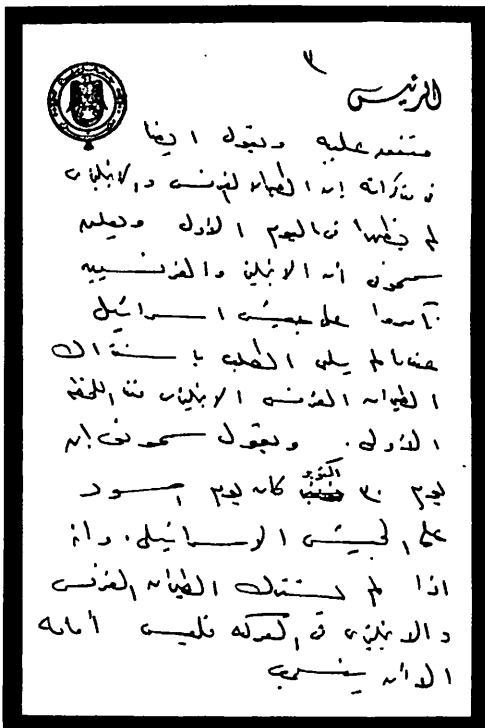 ٣
الرئيس
متفق عليه ويقول ايضا
فى مذكراته إن الطيران الفرنسى والانجليزى
لم يظهرا فى اليوم الأول ويعلن
سمحونى أن الانجليز والفرنسيين
تآمروا على جيش اسرائيل
عندما لم يلبى الطلب باشتراك
الطيران الفرنسى الانجليزى منذ اللحظة
الأولى. ويقول سمحونى إن
يوم ٣٠ اكتوبر كان يوم اسود
على الجيش الاسرائيلى. وانه
اذا لم يشترك الطيران الفرنسى
والانجليزى فى المعركه فليس أمامه
الا أن ينسحب